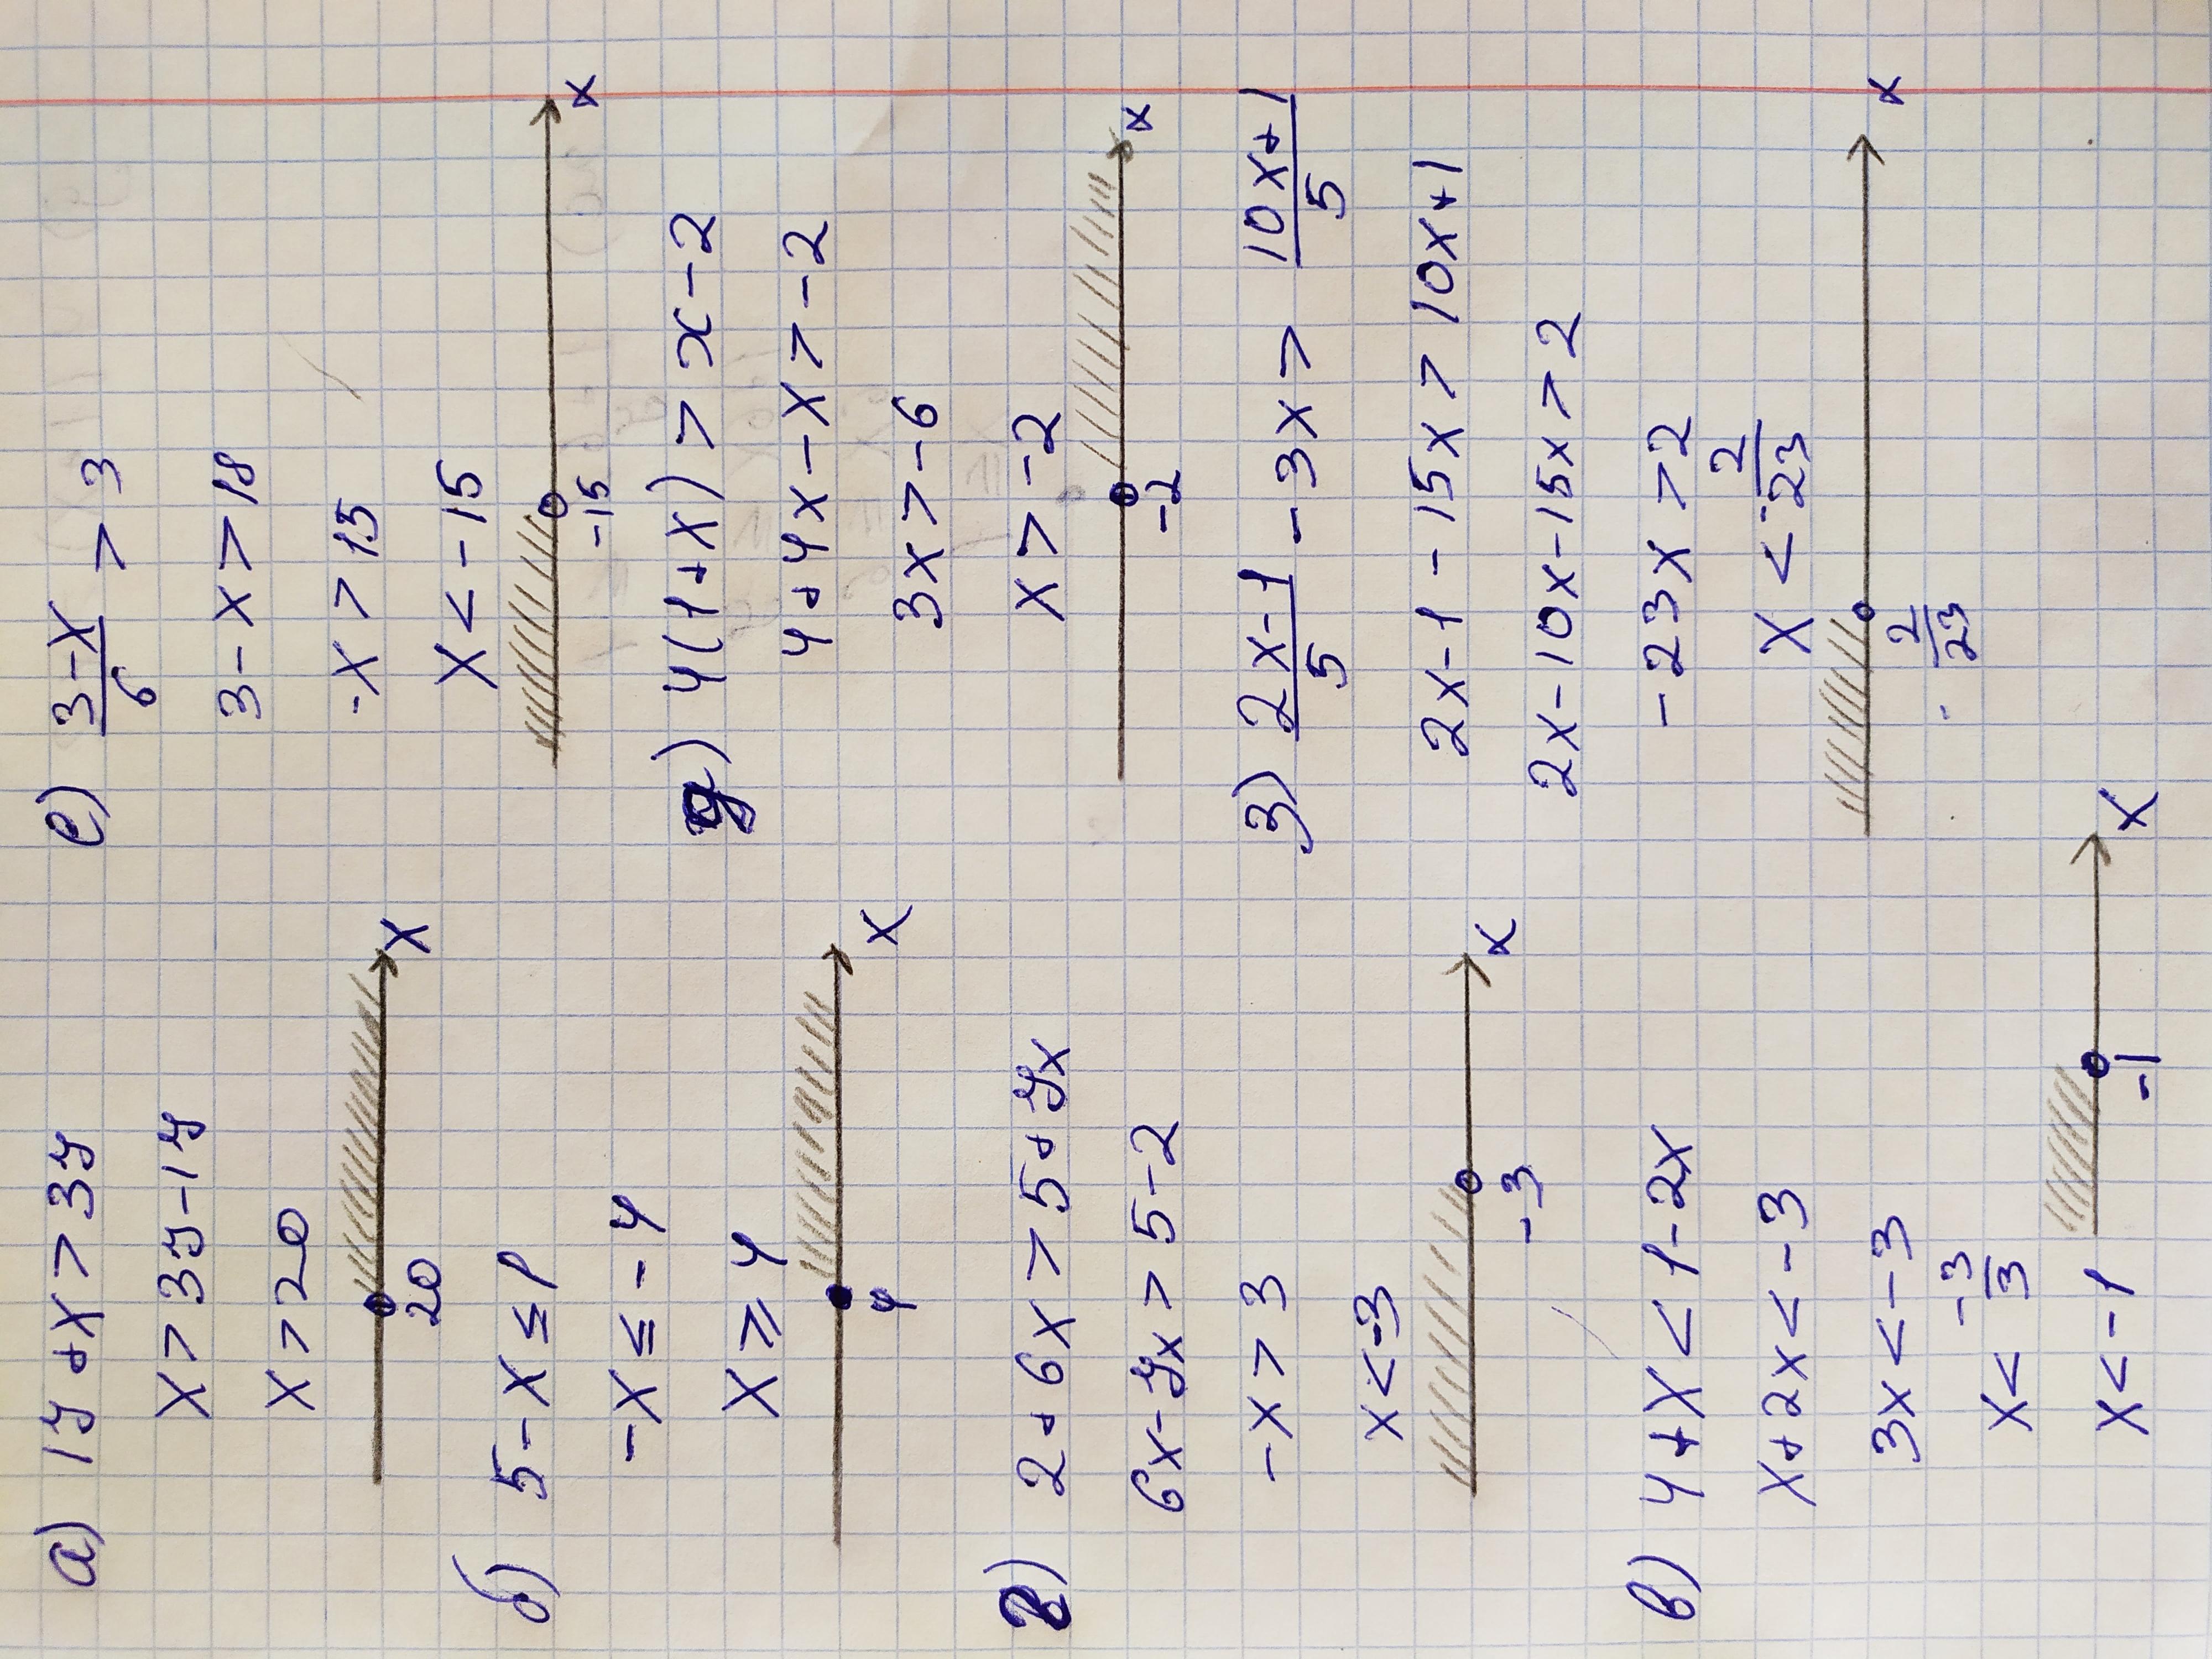 а) 17+x>37
x>37-17
x>20
20 x
б) 5-x≤1
-x≤-4
x≥4
4 x
г) 2+6x>5+7x
6x-7x>5-2
-x>3
x<-3
-3 x
в) 4+x<1-2x
x+2x<-3
3x<-3
x<-3/3
x<-1
-1 x
е) 3-x/6 > 3
3-x>18
-x>15
x<-15
-15 x
д) 4(1+x)>x-2
4+4x-x>-2
3x>-6
x>-2
-2 x
з) 2x-1/5 -3x> 10x+1/5
2x-1-15x>10x+1
2x-10x-15x>2
-23x>2
x<-2/23
-2/23 x